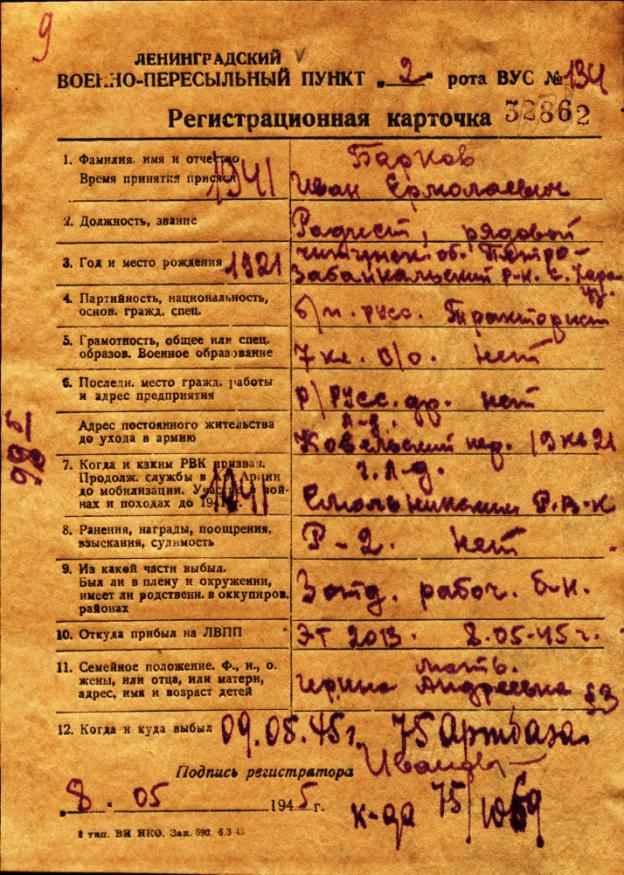 9
ЛЕНИНГРАДСКИЙ V
ВОЕННО-ПЕРЕСЫЛЬНЫЙ ПУНКТ „2“ рота ВУС № 134
Регистрационная карточка 32862
1. Фамилия, имя и отчество Барков
Время принятия присяги 1941 Иван Ермолаевич
2. Должность, звание Радист, рядовой
3. Год и место рождения 1921 читинск. об. Петро-
Забайкальский р-н. с. Хара
уз.
4. Партийность, национальность,
основ. гражд. спец. б/п. русс. Тракторист
5. Грамотность, общее или спец.
образов. Военное образование 7 кл. в/о. нет
6. Последн. место гражд. работы
и адрес предприятия нет
Адрес постоянного жительства Л-д.
до ухода в армию Ковельский пер. 19 кв 21
7. Когда и каким РВК призван. г. Л-д.
Продолж. службы в Армии
до мобилизации. Участ. вой-
нах и походах до 1941 1941 Смольнинским Р.В.К
8. Ранения, награды, поощрения,
взыскания, судимость Р-2. нет
9. Из какой части выбыл.
Был ли в плену и окружении,
имеет ли родственн. в оккупиров.
районах 3 отд. рабоч. б-н.
10. Откуда прибыл на ЛВПП ЭГ 2013. 8.05-45 г.
11. Семейное положение. Ф., и., о. мать.
жены, или отца, или матери,
адрес, имя и возраст детей Ирина Андреевна 53
12. Когда и куда выбыл 09.05.45г. 75 Артбаза.
Подпись регистратора
„8“ 05 1945 г. к-да 75/1069
2 тип. ВИ НКО. Зак. 590. 6.3 45